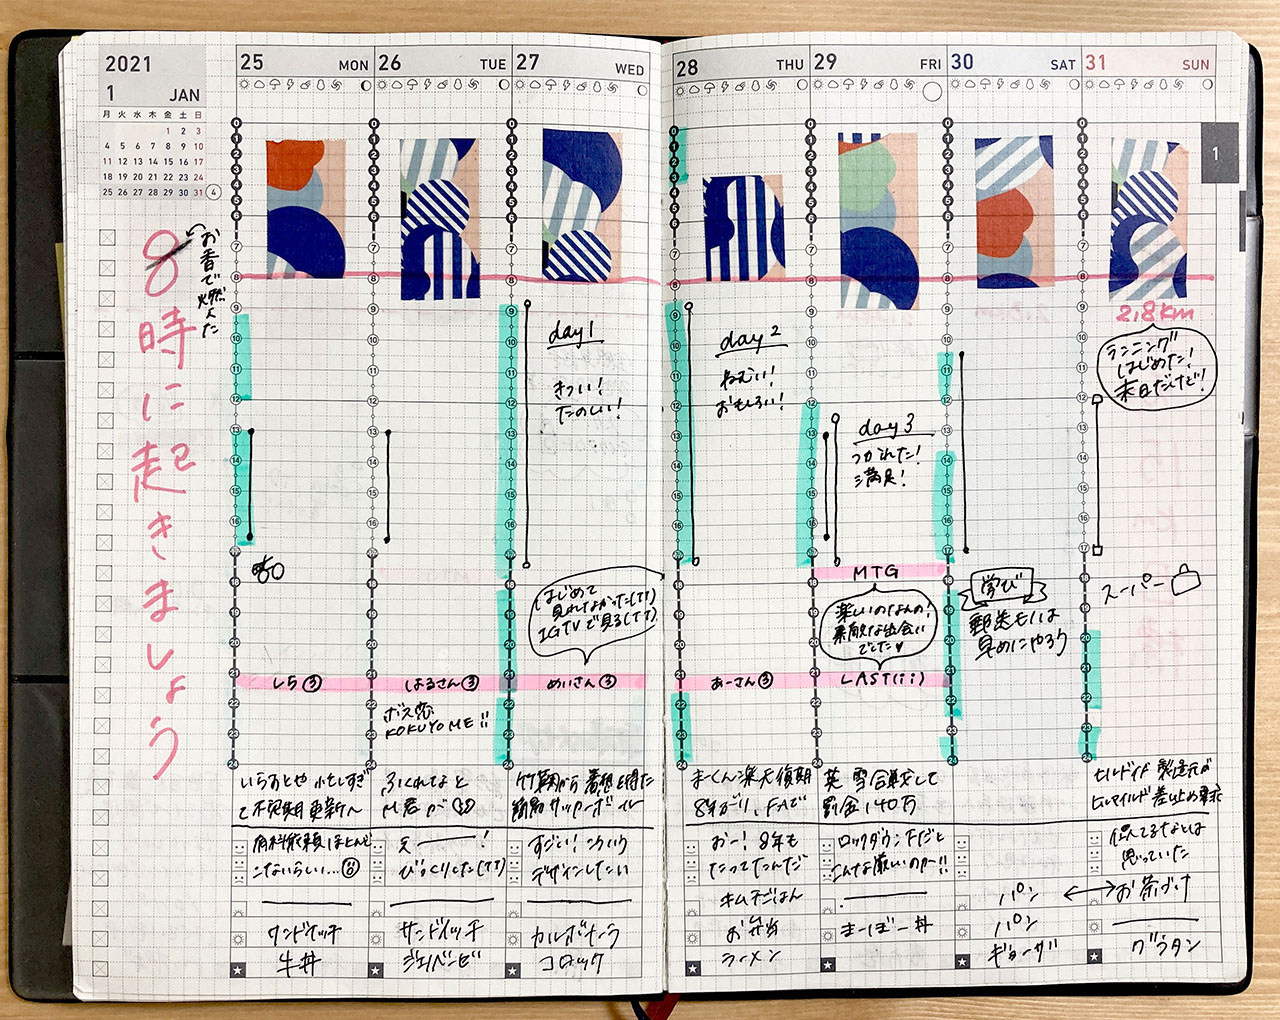 2021
1 JAN
月 火 水 木 金 土 日
1 2 3
4 5 6 7 8 9 10
11 12 13 14 15 16 17
18 19 20 21 22 23 24
25 26 27 28 29 30 31 4
お香で燃えた
8時に起きましょう
25 MON
しら③
いらすとや
て不定期更新へ
サンドイッチ
牛丼
26 TUE
はるさん③
ボス恋
KOKUYO ME!!
ふくれなと
え——!
びっくりした(TT)
サンドイッチ
27 WED
day 1
きつい!
たのしい!
はじめて
見れなかった(TT)
IGTVで見る(TT)
めいさん③
すごい! こういう
デザインしたい
カルボナーラ
コロッケ
28 THU
day 2
ねむい!
おもしろい!
あーさん③
まーくん楽天復帰
8年ぶり、FAで
おー! 8年も
たってたんだ
キムチごはん
お弁当
ラーメン
29 FRI
day 3
つかれた!
満足!
MTG
楽しいのなんの!
素敵な出会い
でした♥
LAST(ii)
英 雪合戦して
罰金140万
ロックダウン下だと
こんな厳しいのかー!!
まーぼー丼
30 SAT
学び
郵送モノは
早めにやろう
パン
パン
ギョーザ
31 SUN
2.8km
ランニング
はじめた!
末日だけど!
スーパー
ヒルドイド 製造元が
ヒルマイルド 差し止め要求
似てるなとは
思っていた
お茶づけ
グラタン
1